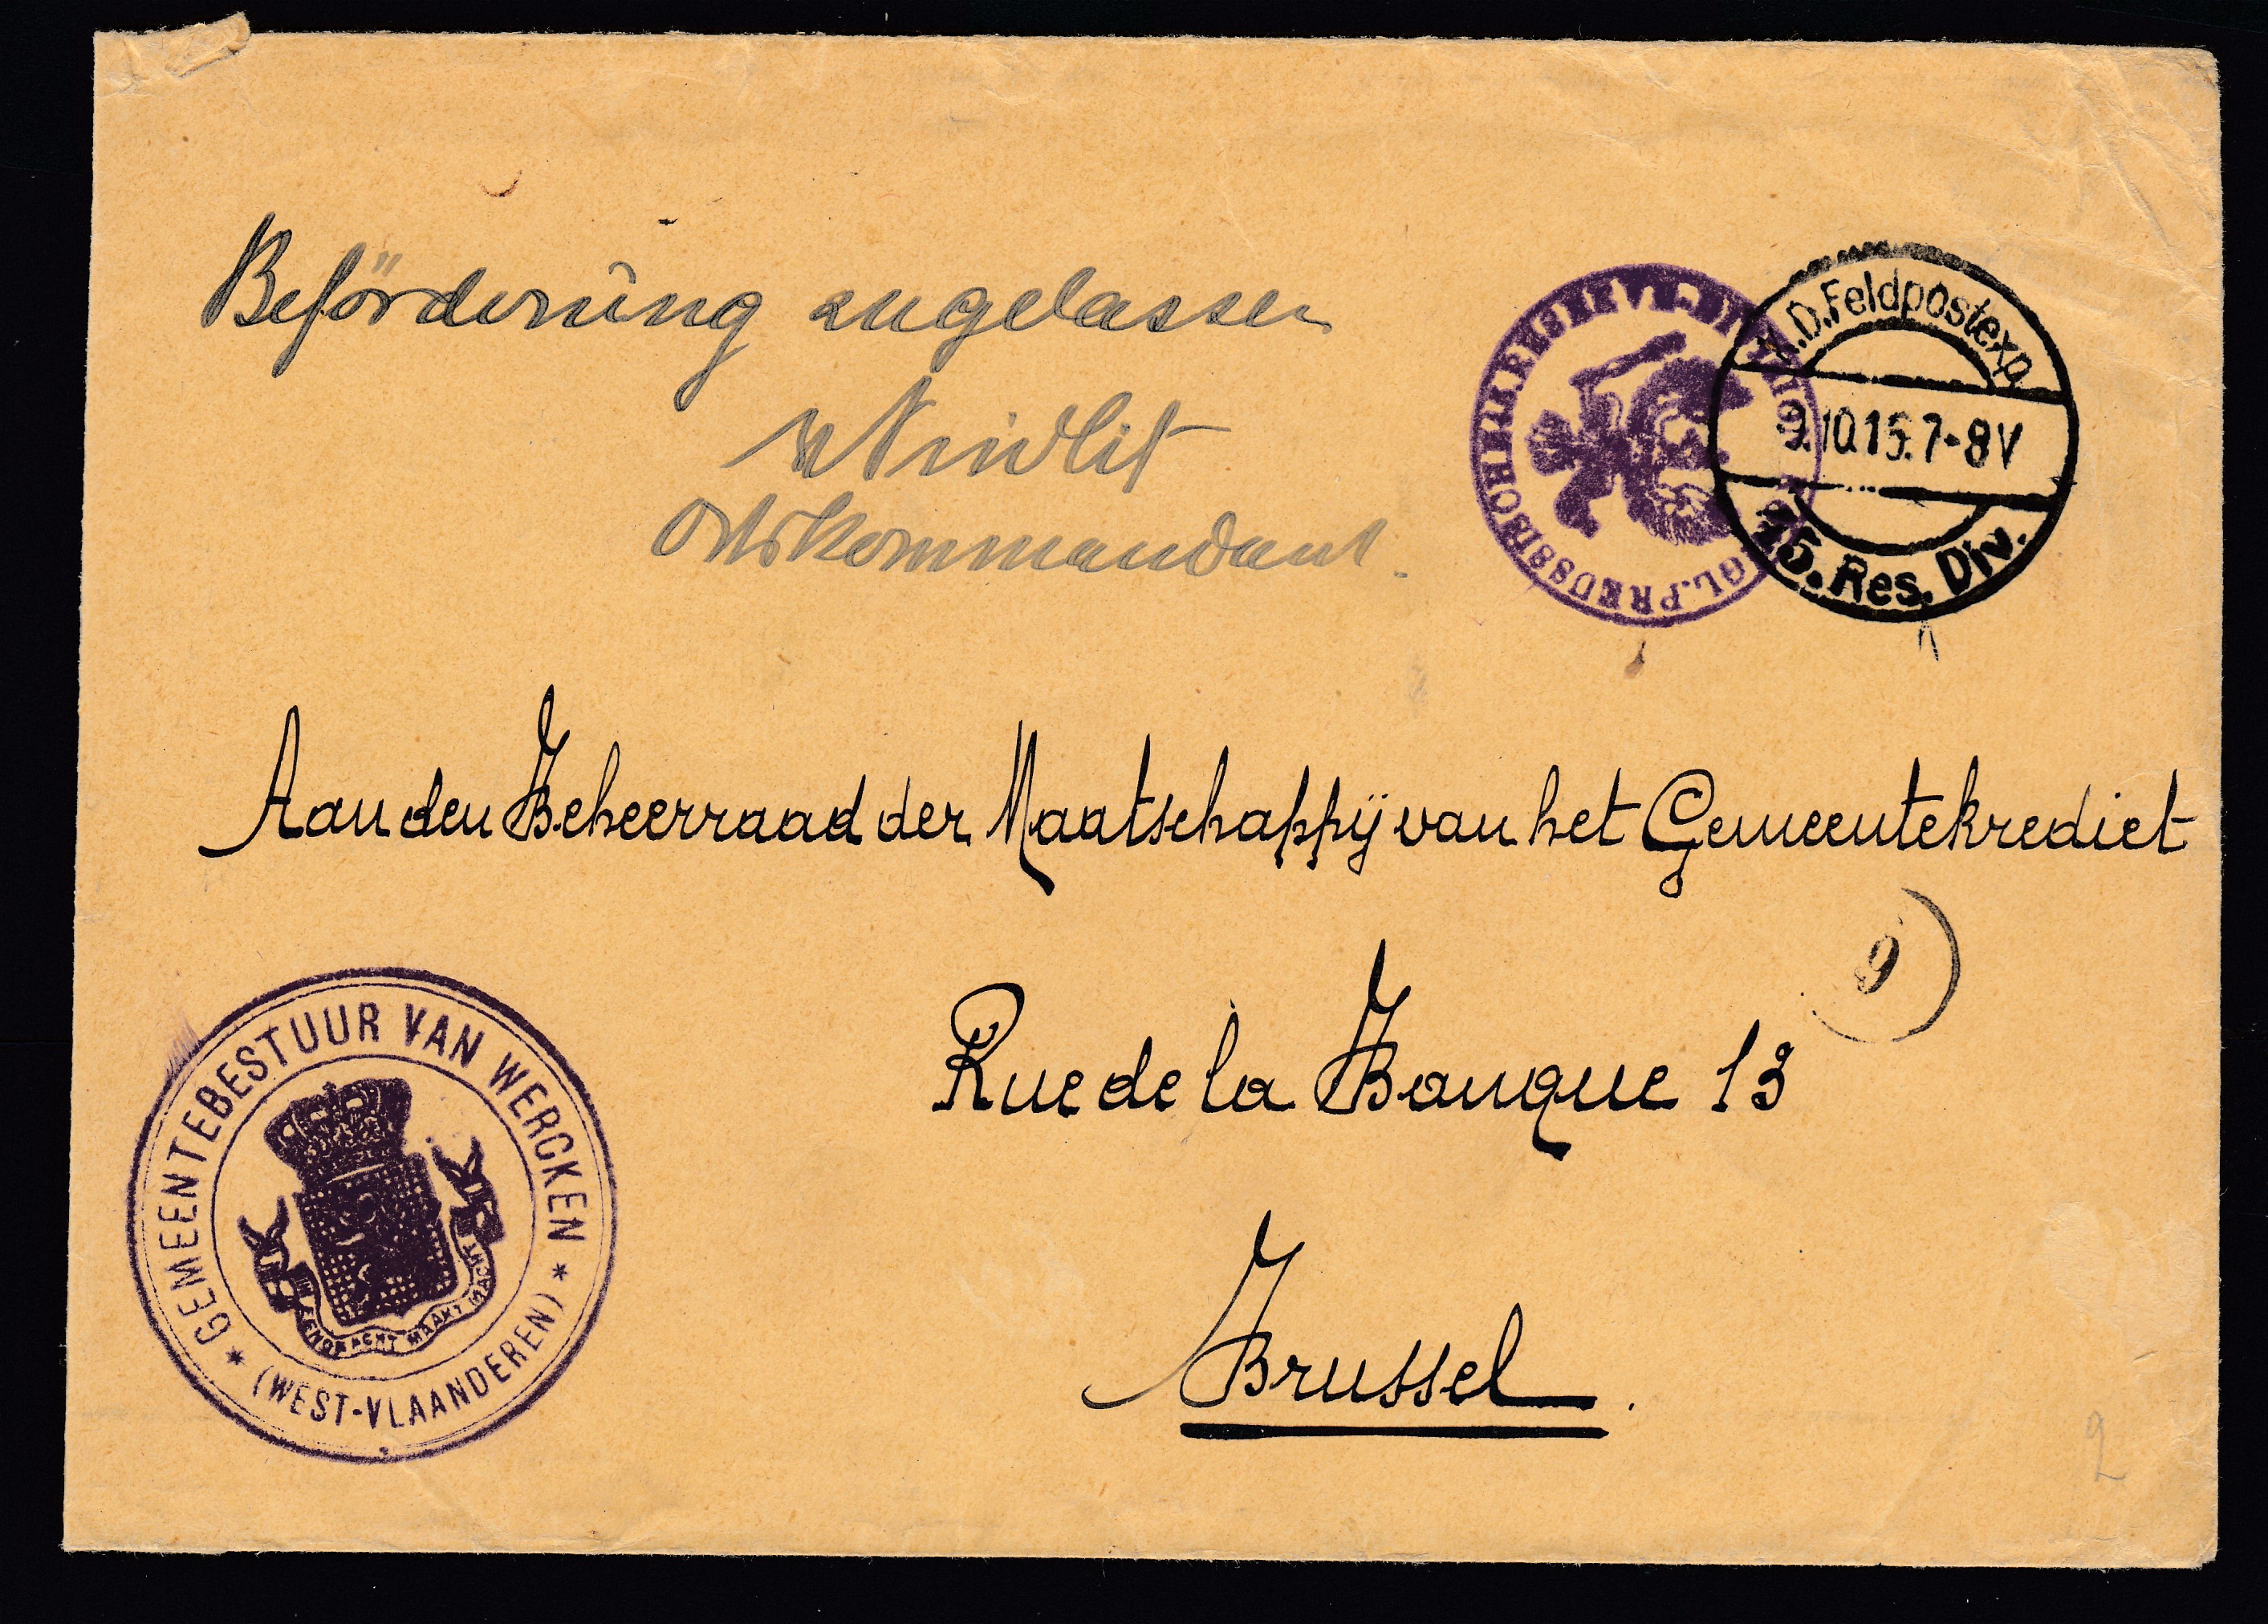 Beförderung zugelassen
Ortskommandant.
K.D.Feldpostexp.
9.10.15.7-8V
45. Res. Div.
Aan den Beheerraad der Maatschappÿ van het Gemeentekrediet
9
Rue de la Banque 13
Brussel.
* GEMEENTEBESTUUR VAN WERCKEN *
(WEST-VLAANDEREN)
EENDRACHT MAAKT MACHT
2